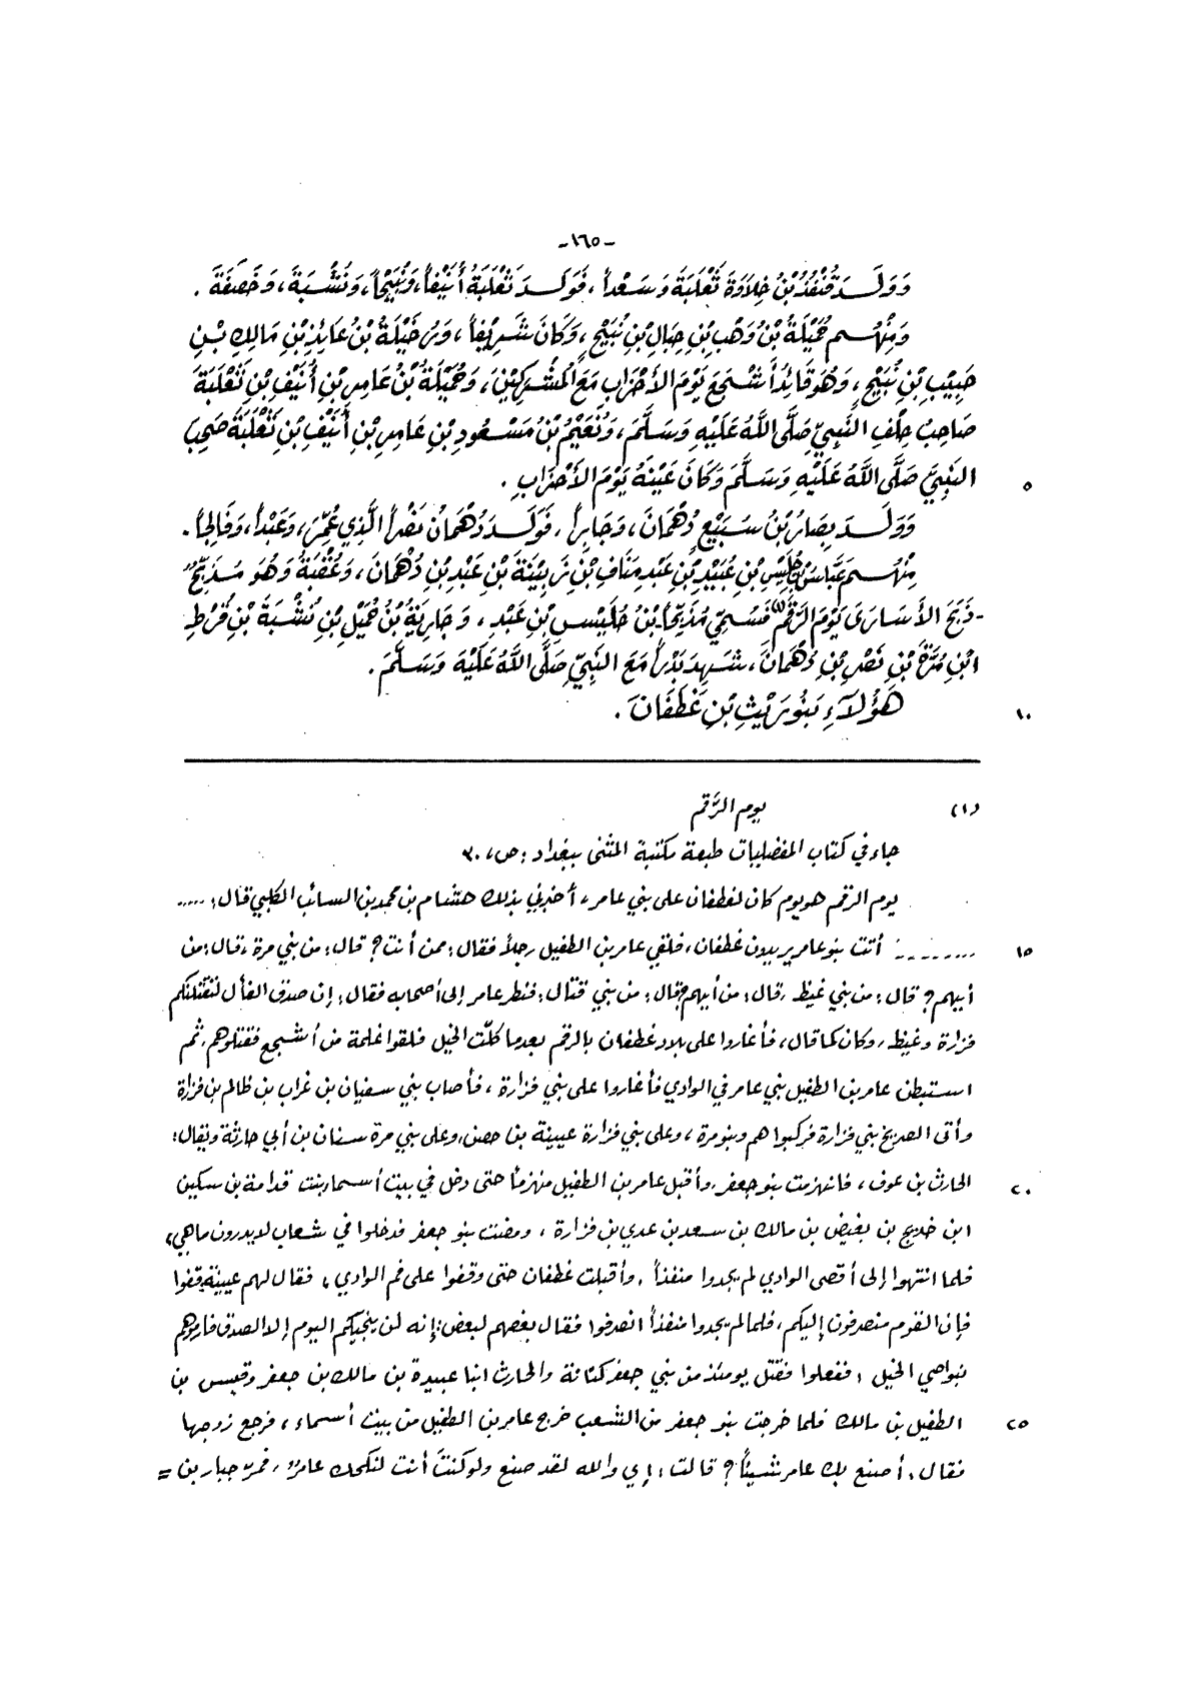 -١٦٥-
وَوَلَدَ قُنْفُذُ بْنُ خِلَاوَةَ ثَعْلَبَةَ وَسَعْداً، فَوَلَدَ ثَعْلَبَةُ أُنَيْفاً، وَنُبَيْحاً، وَنُشْبَةَ، وَخَصَفَةَ.
وَمِنْهُم حُمَيْلَةُ بْنُ وَهْبِ بْنِ حِبَالِ بْنِ نُبَيْحٍ، وَكَانَ شَرِيْفاً، وَرُخَيْلَةُ بْنُ عَائِذِ بْنِ مَالِكِ بْنِ
حَبِيْبِ بْنِ نُبَيْحٍ، وَهُوَ قَائِدُ أَشْجَعَ يَوْمَ الأَحْزَابِ مَعَ الْمُشْرِكِيْنَ، وَحُمَيْلَةُ بْنُ عَامِرِ بْنِ أُنَيْفِ بْنِ ثَعْلَبَةَ
صَاحِبُ حِلْفِ النَّبِيِّ صَلَّى اللهُ عَلَيْهِ وَسَلَّمَ، وَنُعَيْمُ بْنُ مَسْعُودِ بْنِ عَامِرِ بْنِ أُنَيْفِ بْنِ ثَعْلَبَةَ صَحِبَ
النَّبِيَّ صَلَّى اللهُ عَلَيْهِ وَسَلَّمَ وَكَانَ عَيْنَهُ يَوْمَ الأَحْزَابِ. ٥
وَوَلَدَ بِصَارُ بْنُ سُبَيْعٍ دُهْمَانَ، وَجَابِراً، فَوَلَدَ دُهْمَانُ نَصْراً الَّذِي عُمِّرَ، وَعَبْداً، وَفَالِجاً.
مِنْهُم عَبَّاسُ بْنُ حُلَيْسِ بْنِ عُبَيْدِ بْنِ عَبْدِ مَنَافِ بْنِ زَبِيْنَةَ بْنِ عَبْدِ بْنِ دُهْمَانَ، وَعُقْبَةُ وَهُوَ مُذَبِّحٌ
-ذَبَحَ الأَسَارَى يَوْمَ الرَّقَمِ(١) فَسُمِّيَ مُذَبِّحاً- بْنُ حُلَيْسِ بْنِ عَبْدِ، وَجَارِيَةُ بْنُ حُمَيْلِ بْنِ نُشْبَةَ بْنِ قُرْطِ
ابْنِ مُرَّةَ بْنِ نَصْرِ بْنِ دُهْمَانَ، شَهِدَ بَدْراً مَعَ النَّبِيِّ صَلَّى اللهُ عَلَيْهِ وَسَلَّمَ.
هَؤُلَاءِ بَنُو رَيْثِ بْنِ غَطَفَانَ. ١٠
(١) يوم الرَّقم
جاء في كتاب المفضليات طبعة مكتبة المثنى ببغداد: ص، ٣٠
يوم الرقم هو يوم كان لغطفان على بني عامر، أخبرني بذلك هشام بن محمد بن السائب الكلبي قال: .....
......... : أتت بنو عامر يريدون غطفان، فلقي عامر بن الطفيل رجلاً فقال: ممن أنت؟ قال: من بني مرة، قال: من ١٥
أيهم؟ قال: من بني غيظ، قال: من أيهم؟ قال: من بني قتال: فنظر عامر إلى أصحابه فقال: إن صدق الفأل لنقتلنكم
فزارة وغيظ، وكان كما قال، فأغاروا على بلاد غطفان بالرقم بعدما كلّت الخيل فلقوا غلمة من أشجع فقتلوهم، ثم
استبطن عامر بن الطفيل بني عامر في الوادي فأغاروا على بني فزارة، فأصاب بني سفيان بن غراب بن ظالم بن فزارة
وأتى الصريخ بني فزارة فركبوا هم وبنو مرة، وعلى بني فزارة عيينة بن حصن، وعلى بني مرة سنان بن أبي حارثة ويقال:
الحارث بن عوف، فانهزمت بنو جعفر، وأقبل عامر بن الطفيل منهزماً حتى دخل في بيت أسماء بنت قدامة بن سكين ٢٠
ابن خديج بن بغيض بن مالك بن سعد بن عدي بن فزارة، ومضت بنو جعفر فدخلوا في شعاب لا يدرون ما هي،
فلما انتهوا إلى أقصى الوادي لم يجدوا منفذاً، وأقبلت غطفان حتى وقفوا على فم الوادي، فقال لهم عيينة: قفوا
فإن القوم منصرفون إليكم، فلما لم يجدوا منفذاً انصرفوا فقال بعضهم لبعض: إنه لن ينجيكم اليوم إلا الصدق فارموهم
بنواصي الخيل، ففعلوا فقتل يومئذ من بني جعفر كنانة والحارث ابنا عبيدة بن مالك بن جعفر وقيس بن
الطفيل بن مالك فلما خرجت بنو جعفر من الشعب خرج عامر بن الطفيل من بيت أسماء، فرجع زوجها ٢٥
فقال: أصنع بك عامر شيئاً؟ قالت: إي والله لقد صنع ولو كنتَ أنت لنكحك عامرٌ، فمرّ جبار بن =